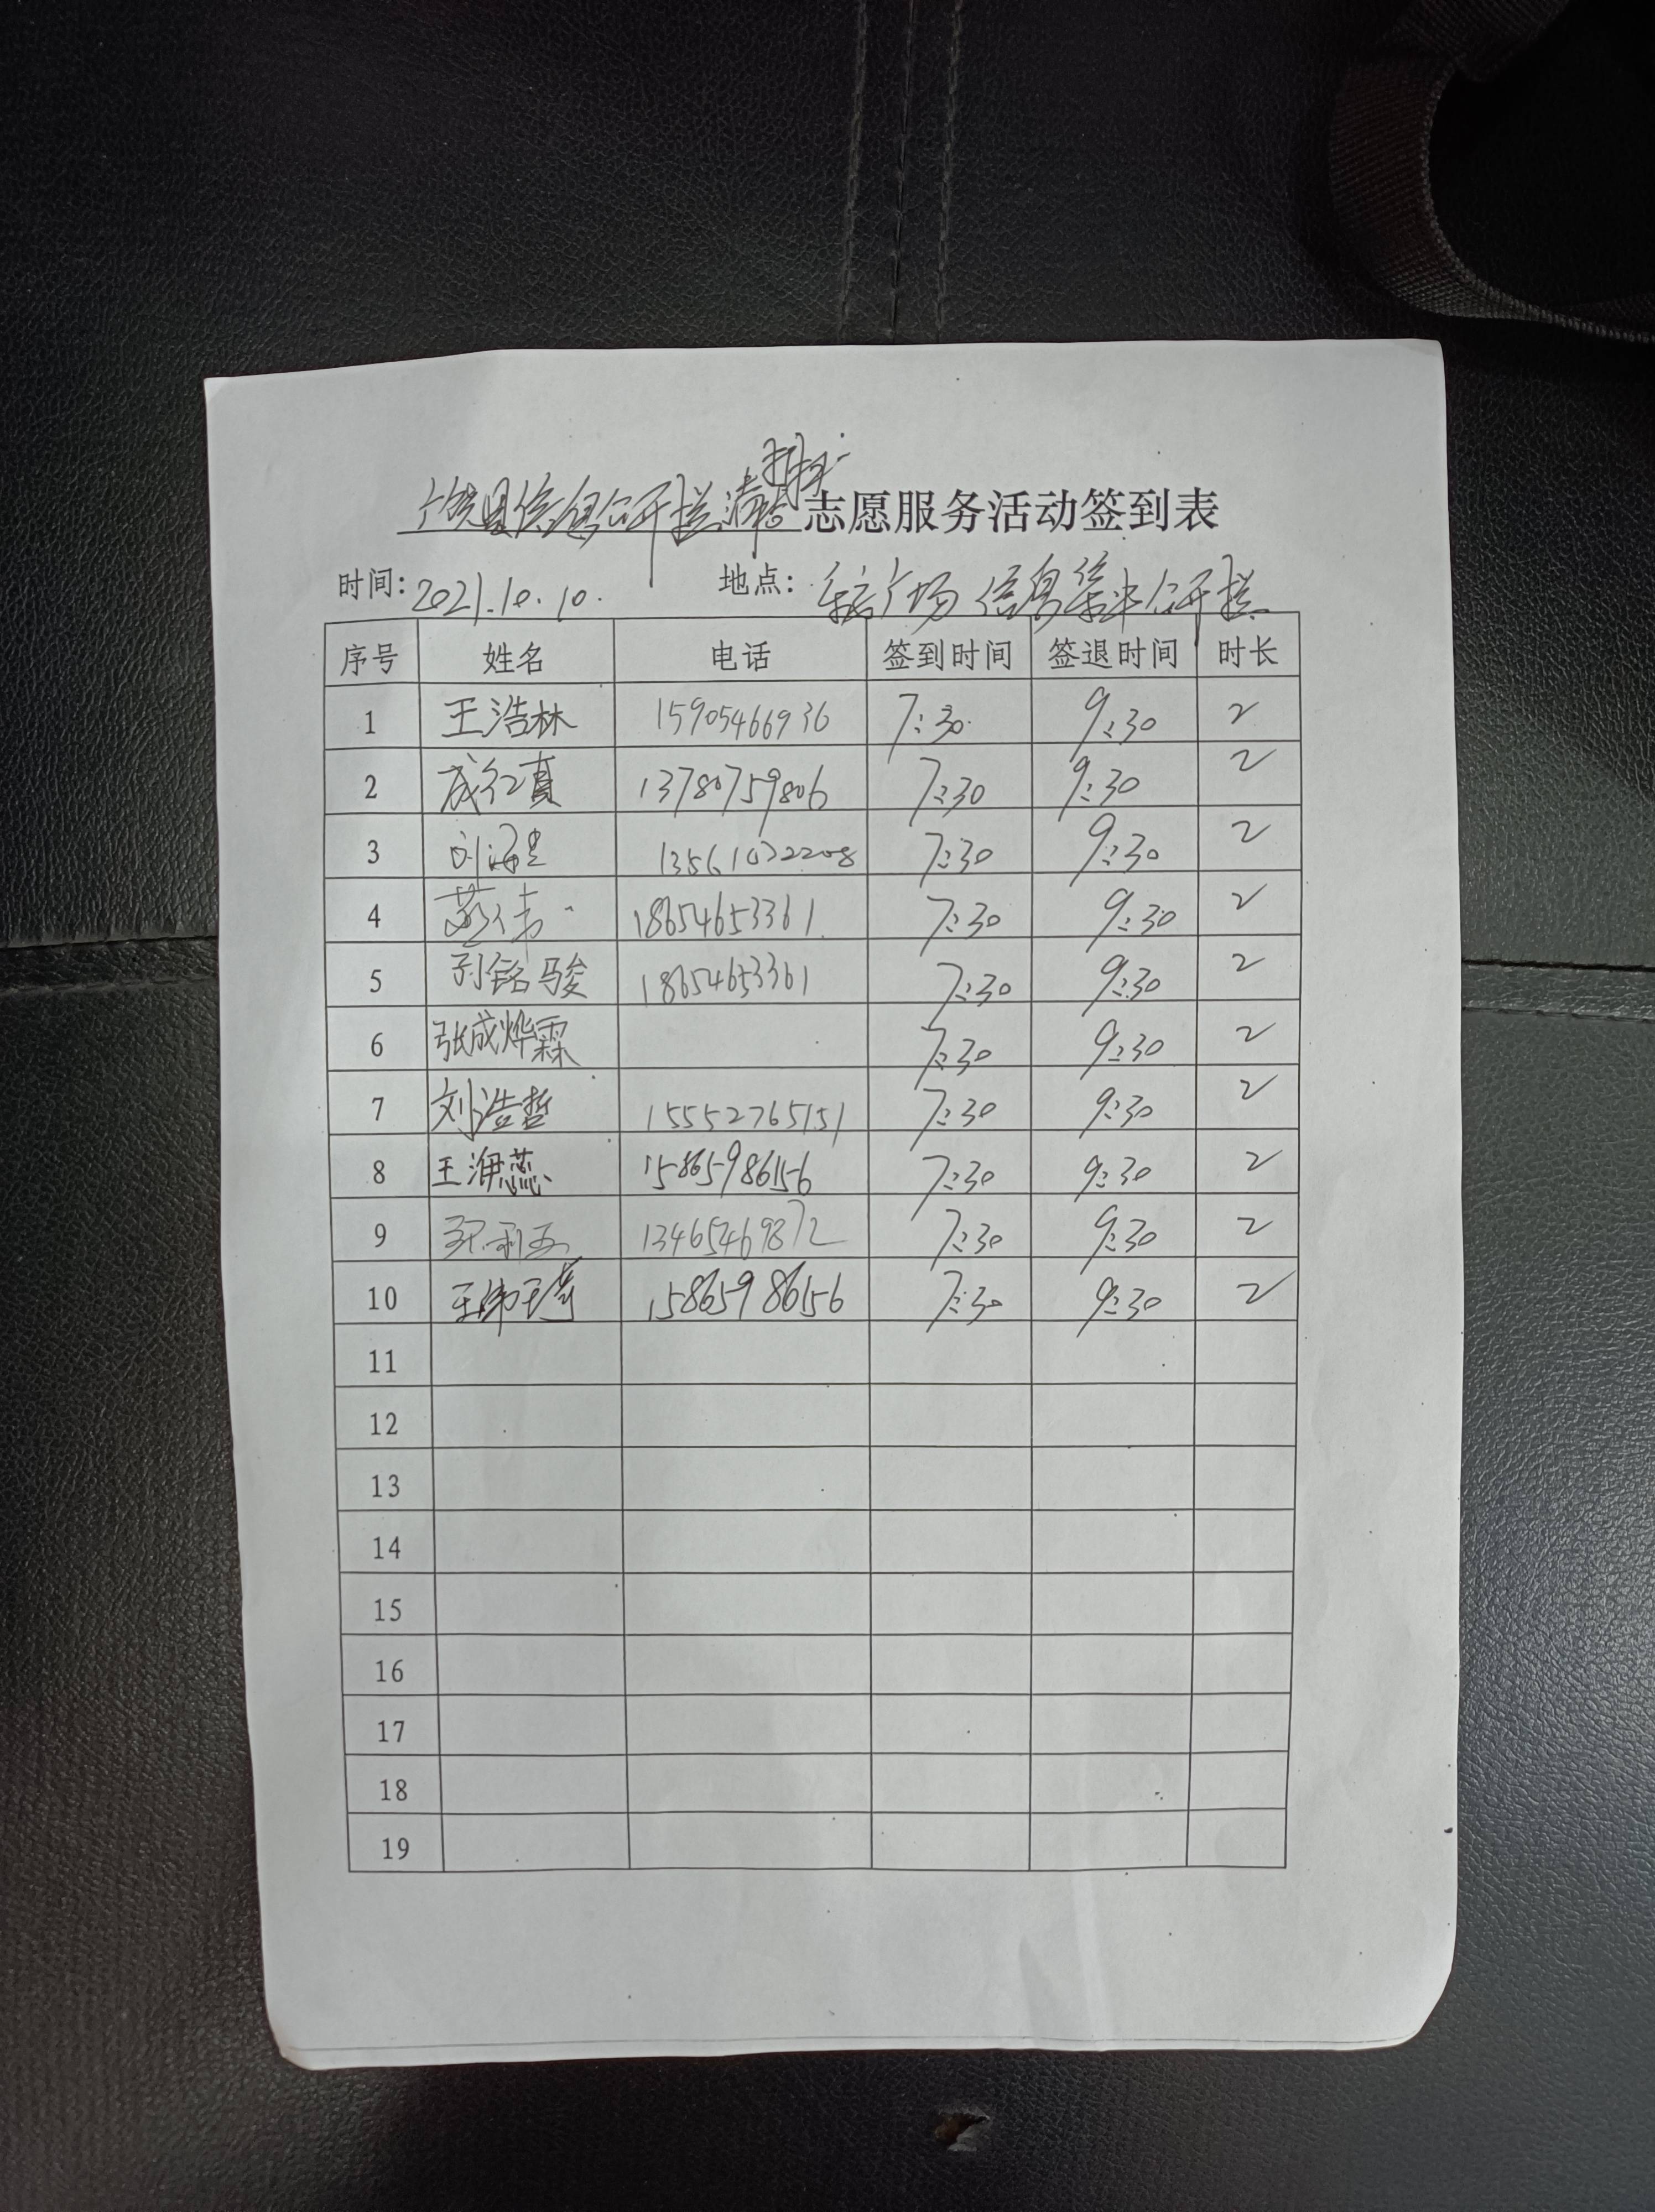 饶县信息公开栏清
志愿服务活动签到表
时间: 2021.10.10. 地点: 广场 信息集中公开栏
序号 姓名 电话 签到时间 签退时间 时长
1 王浩林 15905466936 7:30 9:30 2
2 成红真 13780759806 7:30 9:30 2
3 刘海 13561022208 7:30 9:30 2
4 伟 18654653361 7:30 9:30 2
5 孙铭骏 18654653361 7:30 9:30 2
6 张成烨霖 7:30 9:30 2
7 刘浩哲 15552765151 7:30 9:30 2
8 王海蕊 15865986156 7:30 9:30 2
9 13465469872 7:30 9:30 2
10 王 15865986156 7:30 9:30 2
11
12
13
14
15
16
17
18
19